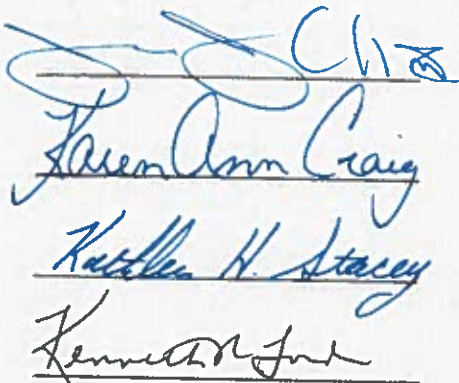 Karen Ann Craig
Kathleen H. Stacey
Kenneth